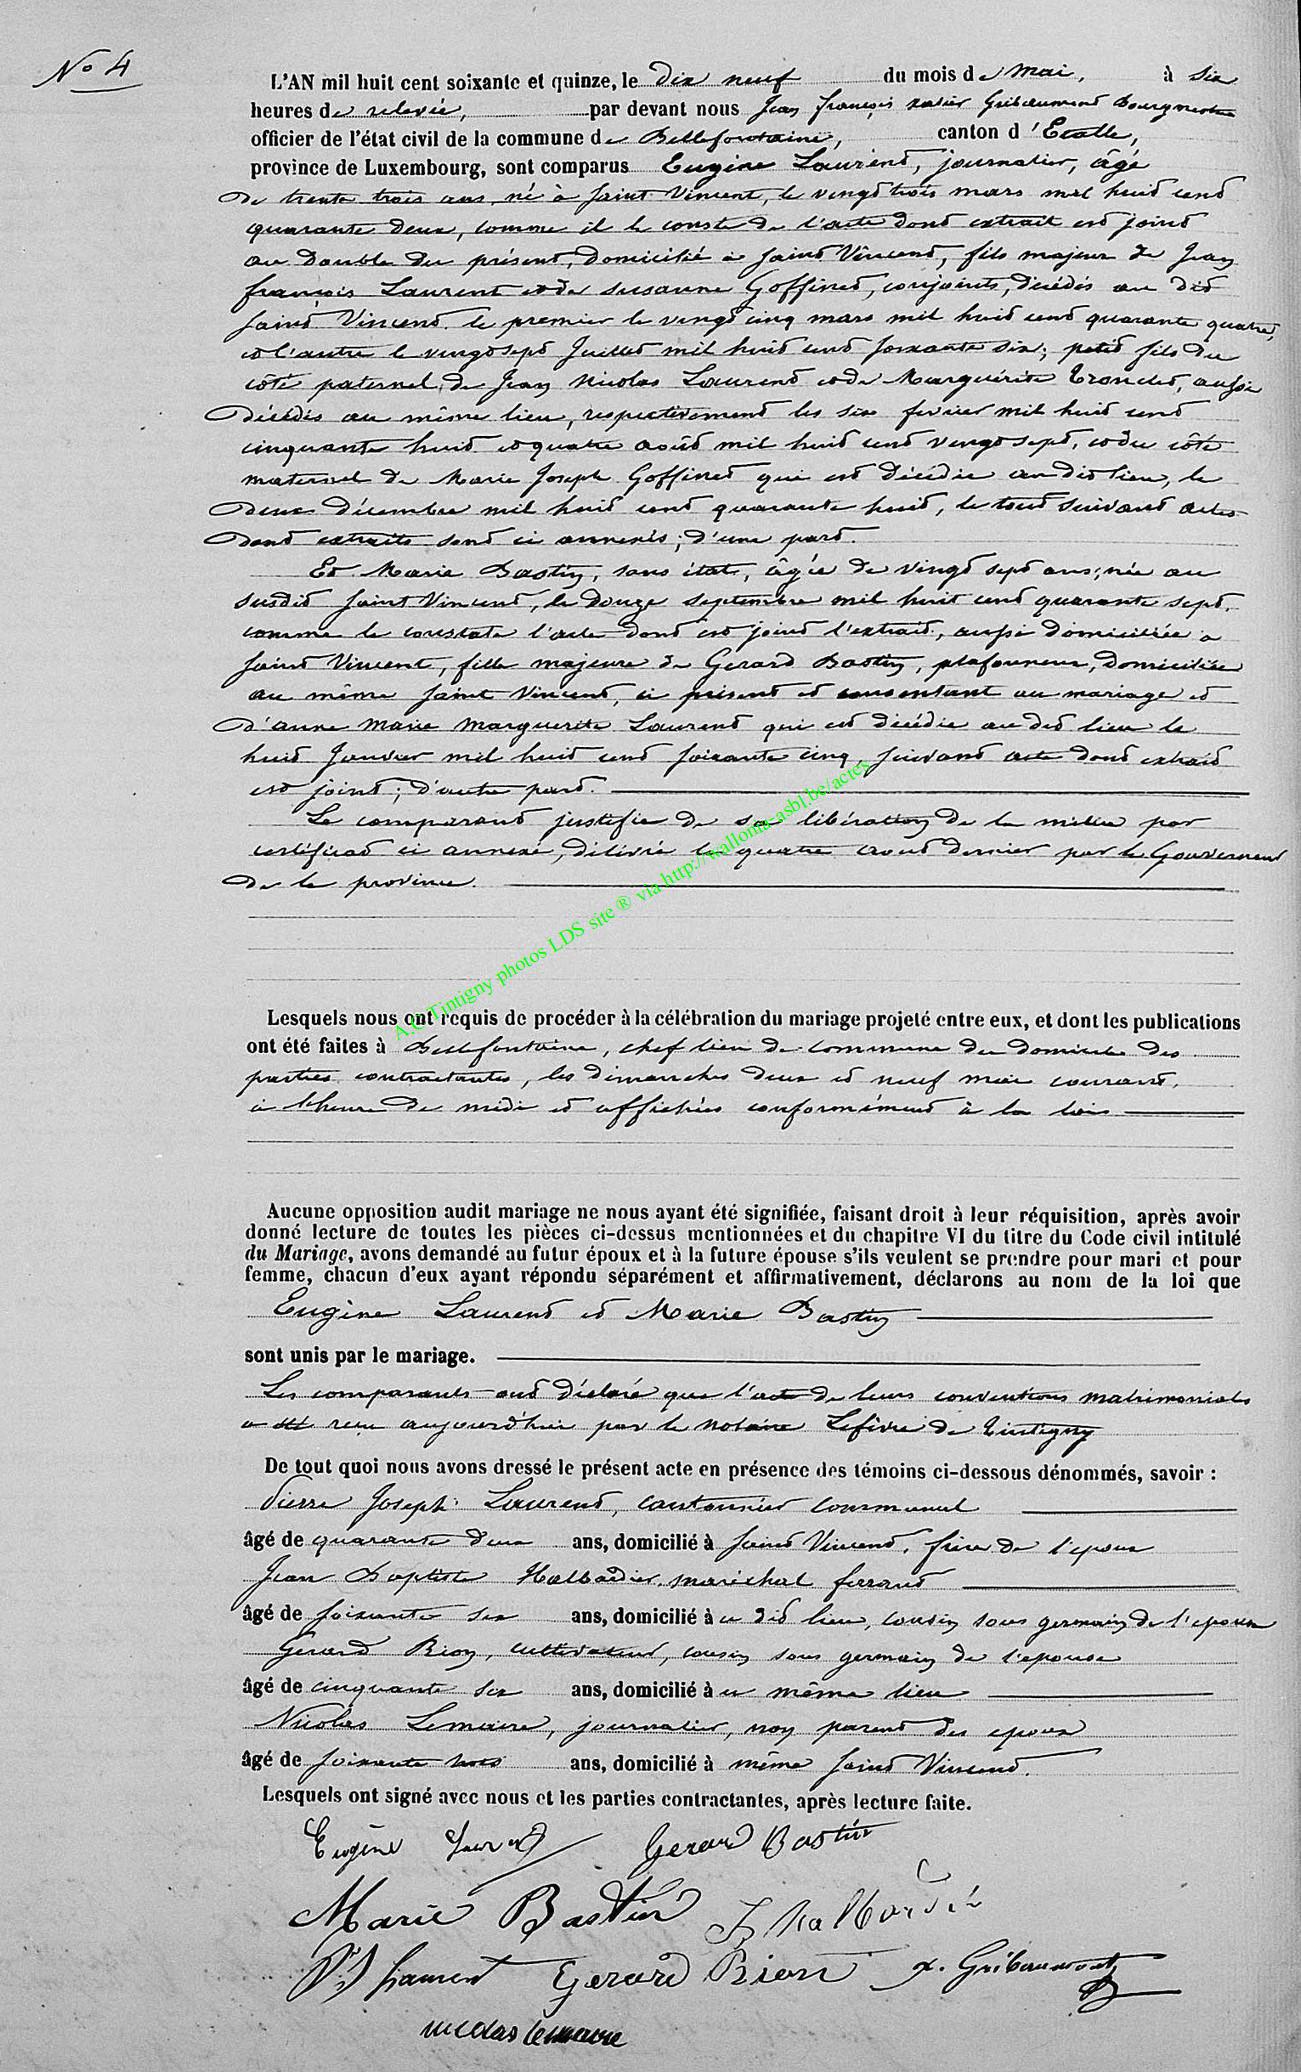 No 4
L'AN mil huit cent soixante et quinze, le dix neuf du mois de mai, à six
heures de relevée, par devant nous Jean françois xavier Gribaumont Bourgmestre
officier de l'état civil de la commune de Bellefontaine, canton d'Etalle,
province de Luxembourg, sont comparus Eugène Laurent, journalier, âgé
de trente trois ans, né à Saint Vincent, le vingt trois mars mil huit cent
quarante deux, comme il le conste de l'acte dont extrait est joint
au double du présent, domicilié à Saint Vincent, fils majeur de Jean
françois Laurent et de Susanne Goffinet, conjoints, décédés au dit
Saint Vincent le premier le vingt cinq mars mil huit cent quarante quatre,
et l'autre le vingt sept Juillet mil huit cent soixante six; petit fils du
côté paternel, de Jean Nicolas Laurent et de Marguérite Tronclet, aussi
décédés au même lieu, respectivement les six fevrier mil huit cent
cinquante huit et quatre août mil huit cent vingt sept, et du côté
maternel de Marie Joseph Goffinet qui est décédée au dit lieu, le
deux décembre mil huit cent quarante huit, le tout suivant actes
dont extraits sont ci annexés; d'une part.
Et Marie Bastin, sans état, âgée de vingt sept ans; née au
susdit Saint Vincent, le douze septembre mil huit cent quarante sept,
comme le constate l'acte dont est joint l'extrait, aussi domiciliée à
Saint Vincent, fille majeure de Gerard Bastin, plafonneur, domiciliée
au même Saint Vincent, ci présent et consentant au mariage et
d'anne Marie Marguerite Laurent qui est décédée au dit lieu le
huit Janvier mil huit cent soixante cinq, suivant acte dont extrait
est joint; d'autre part.
Le comparant justifie de sa libération de la milice par
certificat ci annexé, délivré le quatre août dernier par le Gouverneur
de la province.
A.C Tintigny photos LDS site ® via http://wallonia-asbl.be/actes
Lesquels nous ont requis de procéder à la célébration du mariage projeté entre eux, et dont les publications
ont été faites à Bellefontaine, chef lieu de commune du domicile des
parties contractantes, les dimanches deux et neuf mai courant,
à l'heure de midi et affichées conformément à la loi
Aucune opposition audit mariage ne nous ayant été signifiée, faisant droit à leur réquisition, après avoir
donné lecture de toutes les pièces ci-dessus mentionnées et du chapitre VI du titre du Code civil intitulé
du Mariage, avons demandé au futur époux et à la future épouse s'ils veulent se prendre pour mari et pour
femme, chacun d'eux ayant répondu séparément et affirmativement, déclarons au nom de la loi que
Eugène Laurent et Marie Bastin
sont unis par le mariage.
Les comparants ont déclaré que l'acte de leurs conventions matrimoniales
a été reçu aujourd'hui par le notaire Lefèvre de Tintigny
De tout quoi nous avons dressé le présent acte en présence des témoins ci-dessous dénommés, savoir :
Pierre Joseph Laurent, cantonnier communal
âgé de quarante deux ans, domicilié à Saint Vincent, frère de l'epoux
Jean Baptiste Halbardier, maréchal ferrant
âgé de soixante six ans, domicilié à u dit lieu, cousin sous germain de l'epoux
Gerard Rion, cultivateur, cousin sous germain de l'epouse
âgé de cinquante six ans, domicilié à u même lieu
Nicolas Lemaire, journalier, non parent des epoux
âgé de soixante trois ans, domicilié à même Saint Vincent.
Lesquels ont signé avec nous et les parties contractantes, après lecture faite.
Eugène Laurent Gerard Bastin
Marie Bastin JB halbardié
P.J Laurent Gerard Rion x. Gribaumont
nicolas lemaire